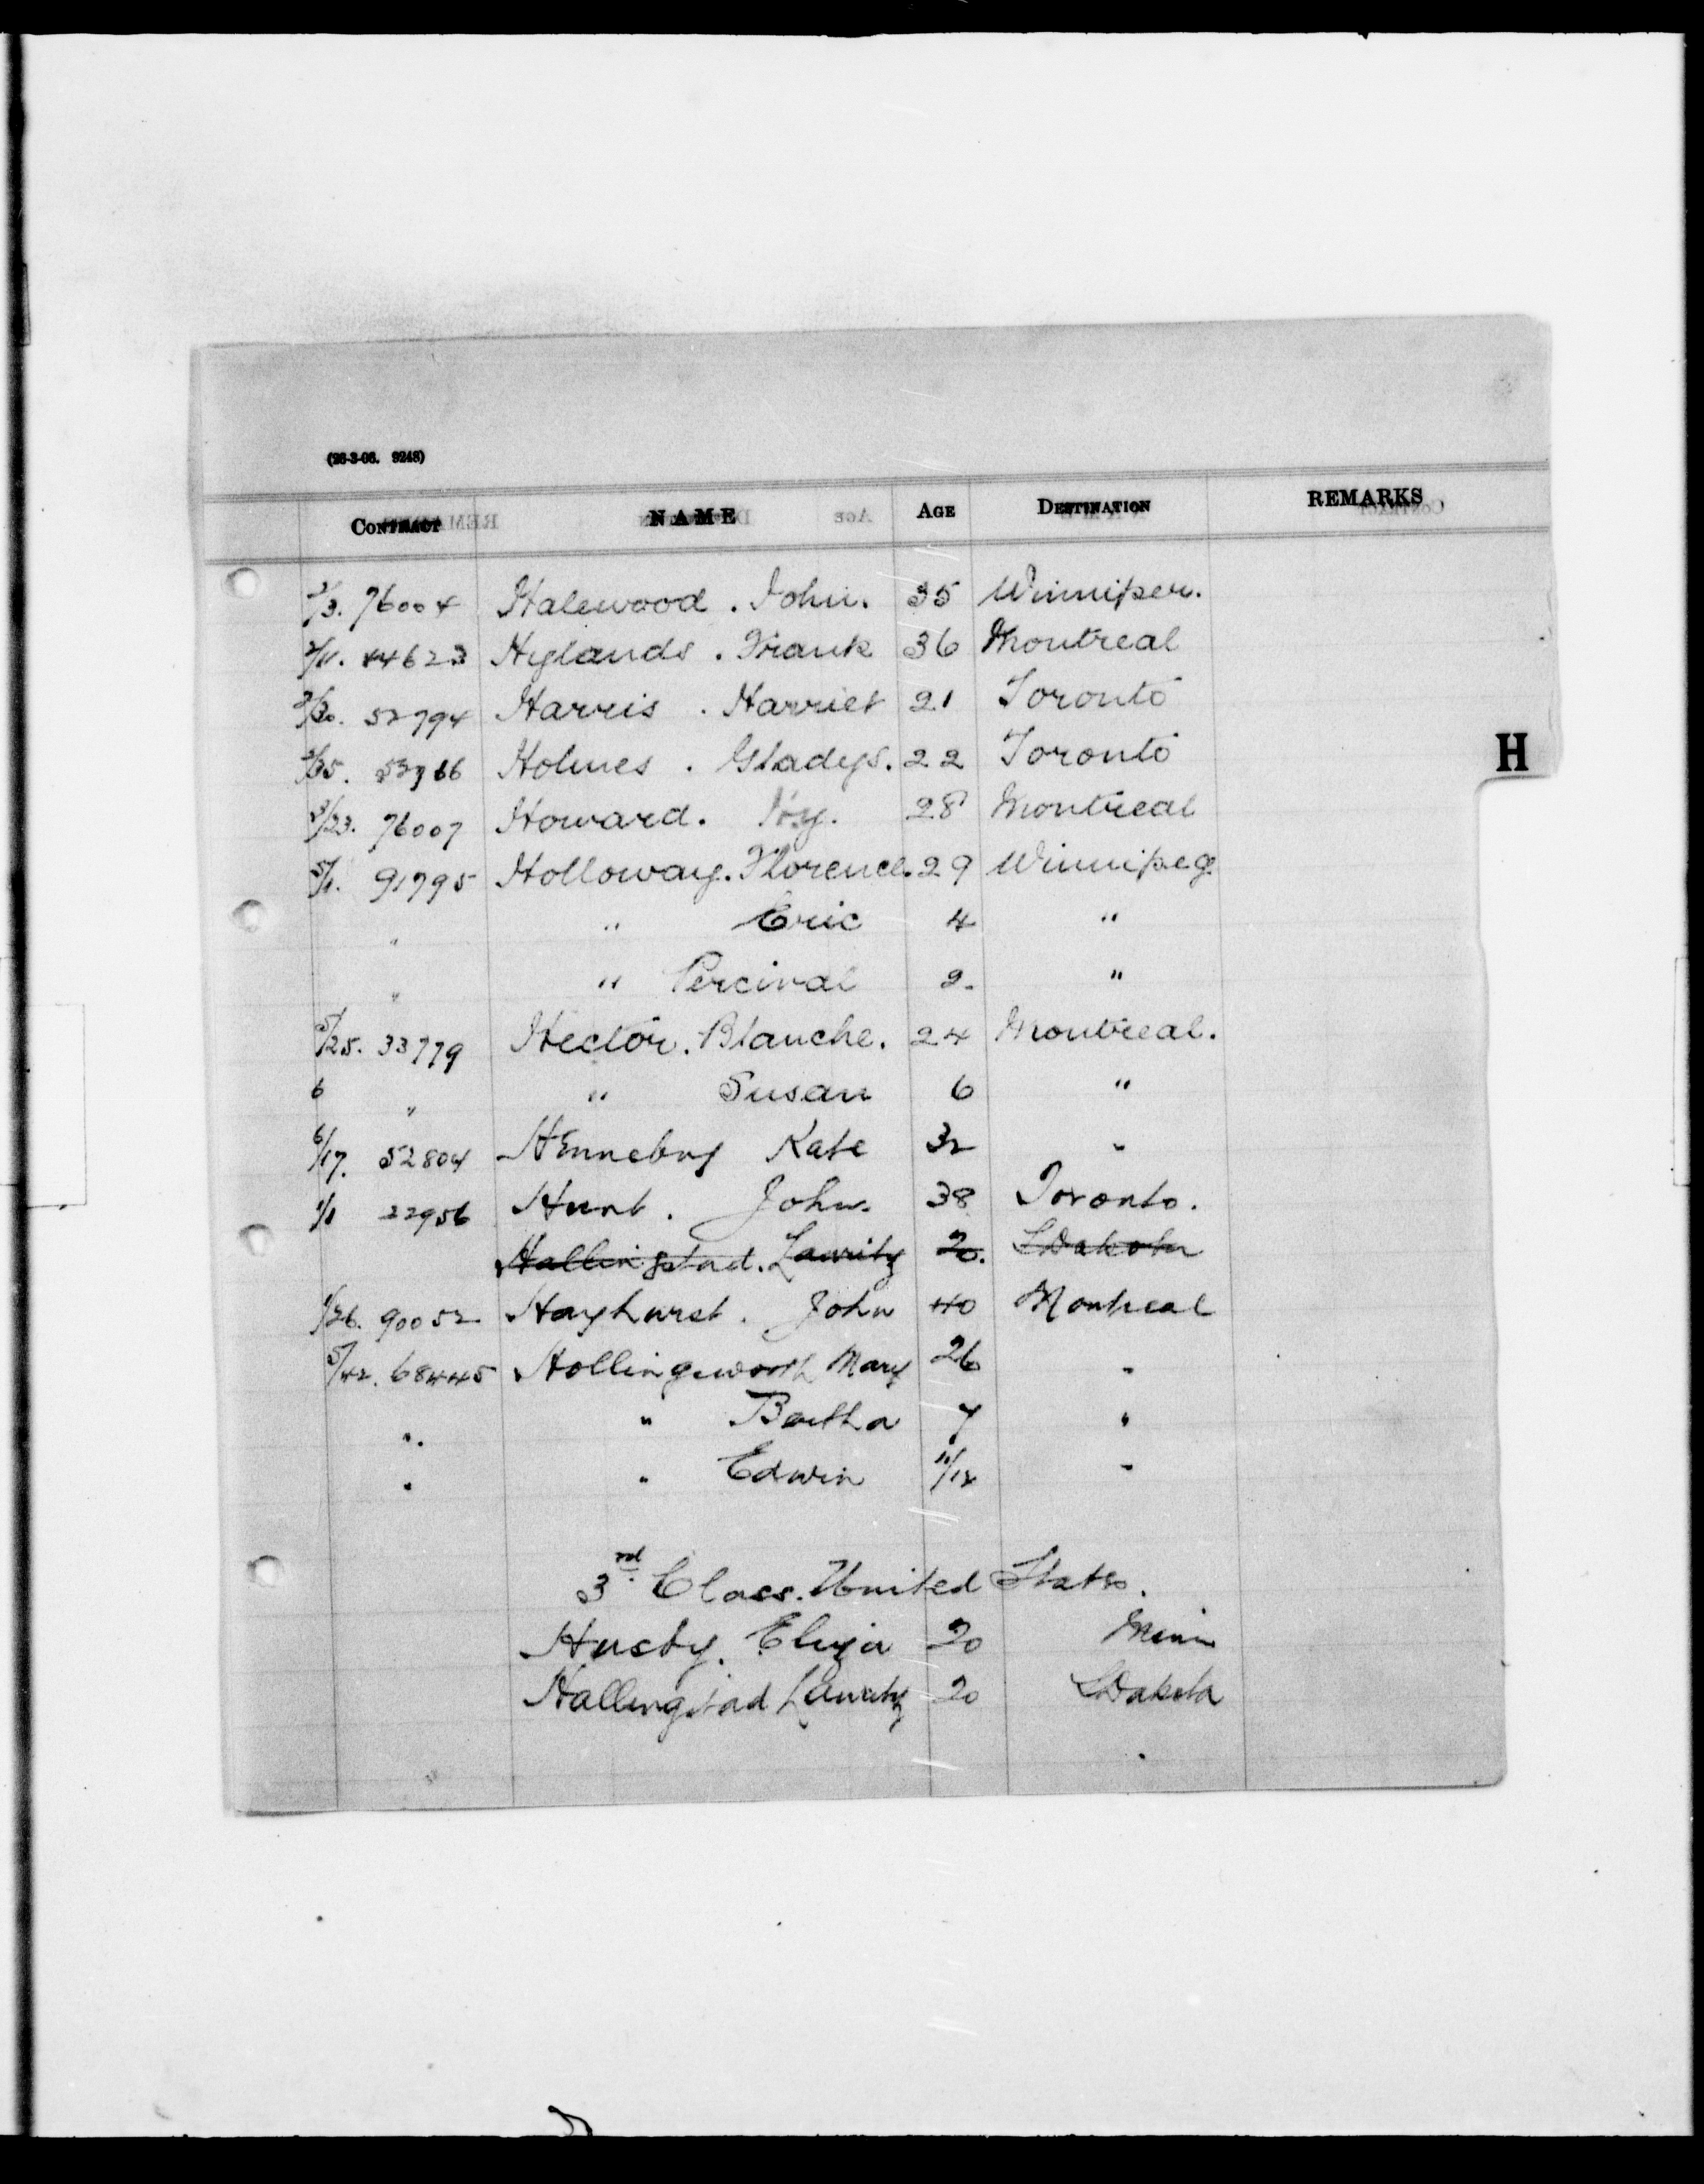 (26-3-06. 9248)
CONTRACT NAME AGE DESTINATION REMARKS
2/3. 76004 Halewood . John. 35 Winnipeg.
2/11. 44623 Hylands . Frank 36 Montreal
2/30. 52794 Harris . Harriet 21 Toronto
Holmes . Gladys. 22 Toronto
H
3/23. 76007 Howard. Ivy. 28 Montreal
5/1. 91795 Holloway. Florence. 29 Winnipeg
" " Eric 4 "
" " Percival 2. "
5/25. 33779 Hector. Blanche. 24 Montreal.
6 " " Susan 6 "
6/17. 52804 Hennebry Kate 32 "
1/1 22956 Hunt. John. 38 Toronto.
Hallingstad. Lauritz 20. SDakota
1/26. 90052 Hayhurst. John 40 Montreal
5/42. 68445 Hollingworth Mary 26 "
" " Bertha 7 "
" " Edwin 11/12 "
3rd Class. United States.
Husby. 20 Minn
Hallingstad Lauritz 20 SDakota